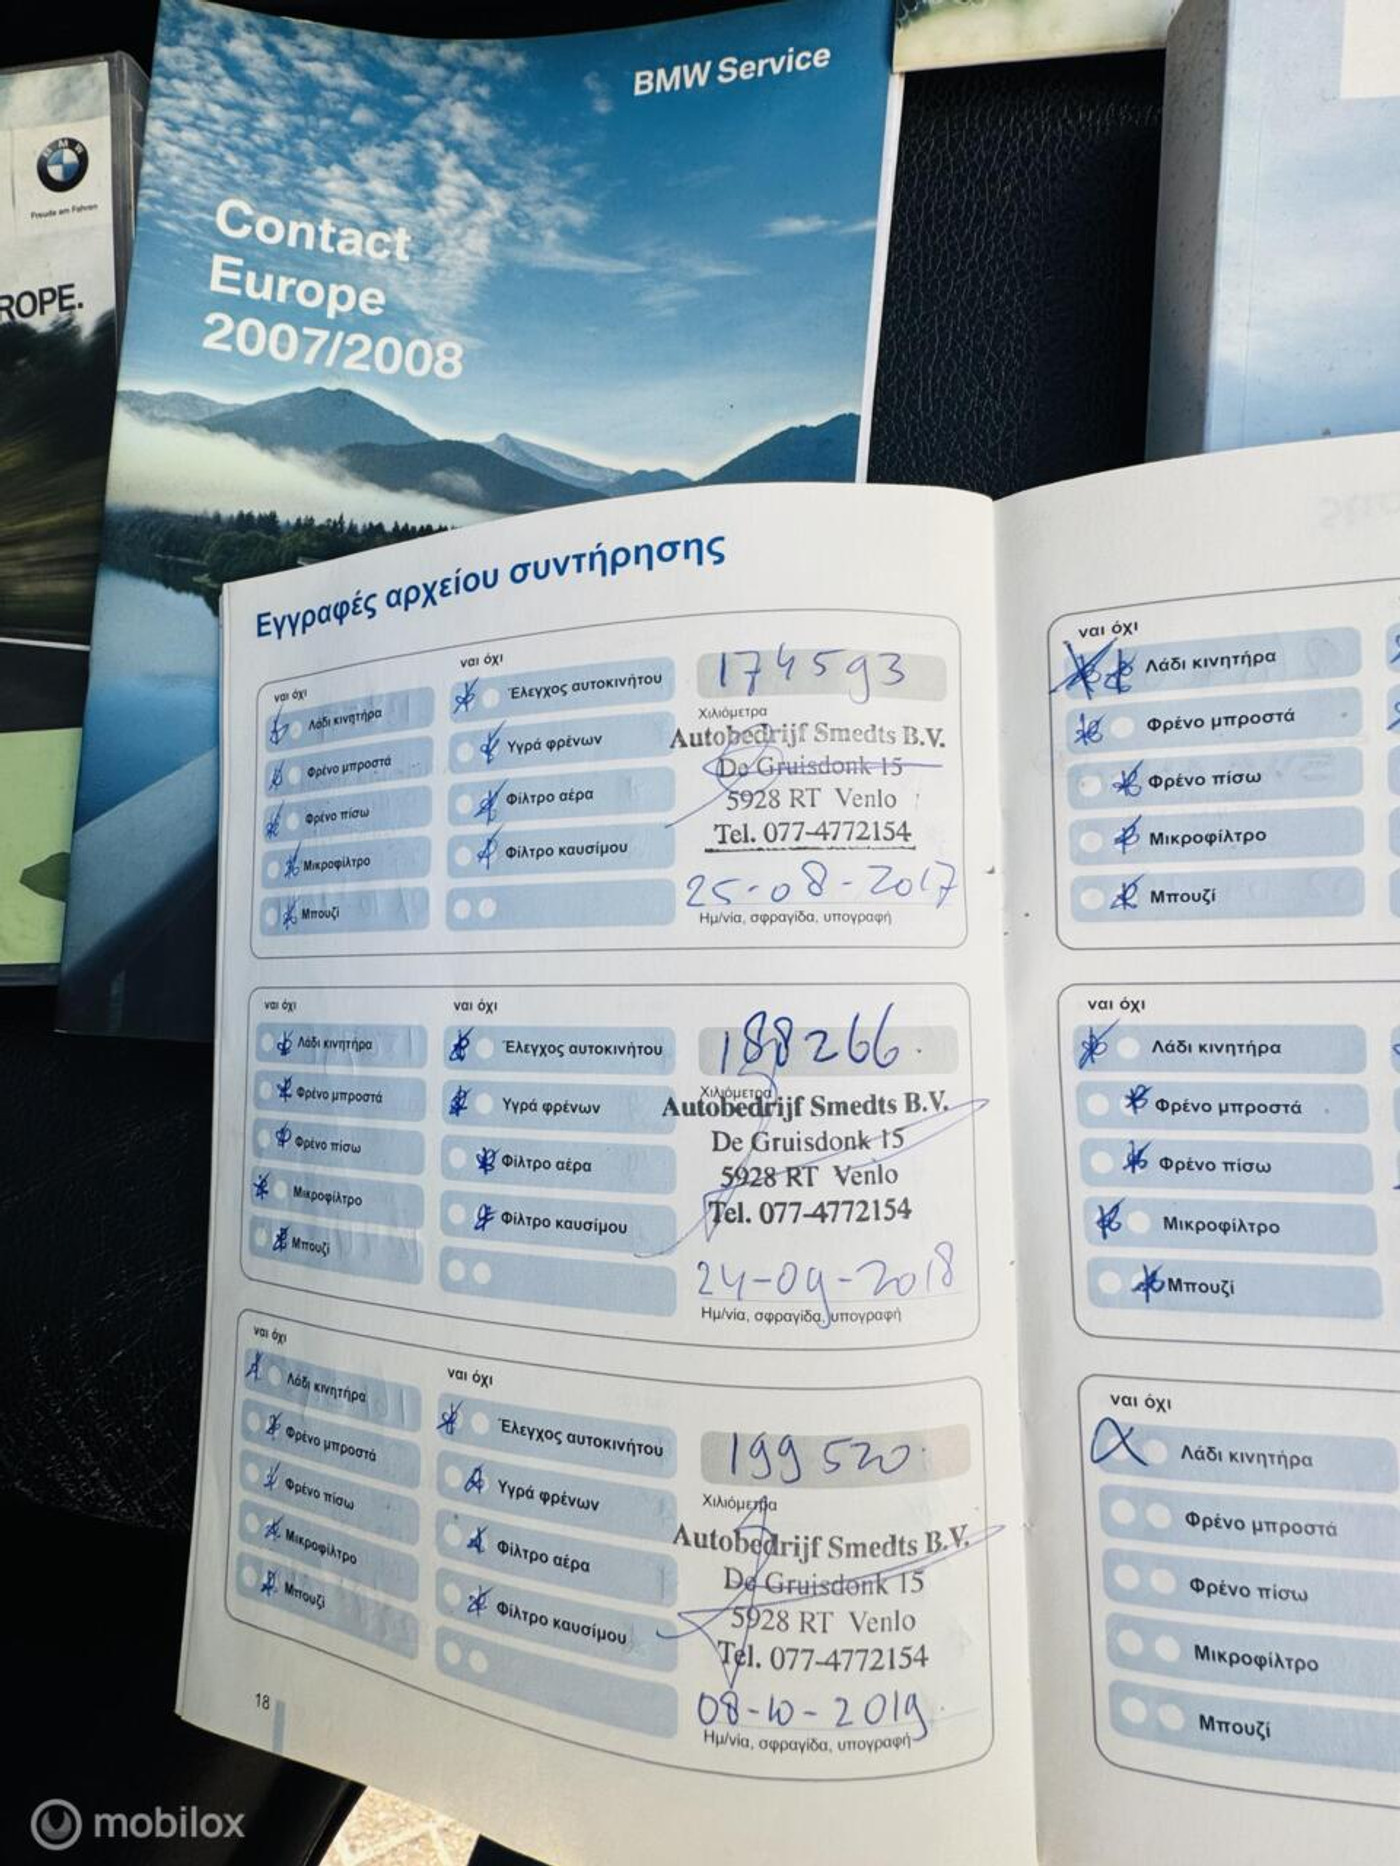 BMW Service
BMW
Freude am Fahren
ROPE.
Contact
Europe
2007/2008
Εγγραφές αρχείου συντήρησης
ναι όχι
Λάδι κινητήρα
Φρένο μπροστά
Φρένο πίσω
Μικροφίλτρο
Μπουζί
ναι όχι
Έλεγχος αυτοκινήτου
Υγρά φρένων
Φίλτρο αέρα
Φίλτρο καυσίμου
174593
Χιλιόμετρα
Autobedrijf Smedts B.V.
De Gruisdonk 15
5928 RT Venlo
Tel. 077-4772154
25-08-2017
Ημ/νία, σφραγίδα, υπογραφή
ναι όχι
Λάδι κινητήρα
Φρένο μπροστά
Φρένο πίσω
Μικροφίλτρο
Μπουζί
ναι όχι
Έλεγχος αυτοκινήτου
Υγρά φρένων
Φίλτρο αέρα
Φίλτρο καυσίμου
188266
Χιλιόμετρα
Autobedrijf Smedts B.V.
De Gruisdonk 15
5928 RT Venlo
Tel. 077-4772154
24-09-2018
Ημ/νία, σφραγίδα, υπογραφή
ναι όχι
Λάδι κινητήρα
Φρένο μπροστά
Φρένο πίσω
Μικροφίλτρο
Μπουζί
ναι όχι
Έλεγχος αυτοκινήτου
Υγρά φρένων
Φίλτρο αέρα
Φίλτρο καυσίμου
199520
Χιλιόμετρα
Autobedrijf Smedts B.V.
De Gruisdonk 15
5928 RT Venlo
Tel. 077-4772154
08-10-2019
Ημ/νία, σφραγίδα, υπογραφή
18
ναι όχι
Λάδι κινητήρα
Φρένο μπροστά
Φρένο πίσω
Μικροφίλτρο
Μπουζί
ναι όχι
Λάδι κινητήρα
Φρένο μπροστά
Φρένο πίσω
Μικροφίλτρο
Μπουζί
ναι όχι
Λάδι κινητήρα
Φρένο μπροστά
Φρένο πίσω
Μικροφίλτρο
Μπουζί
mobilox